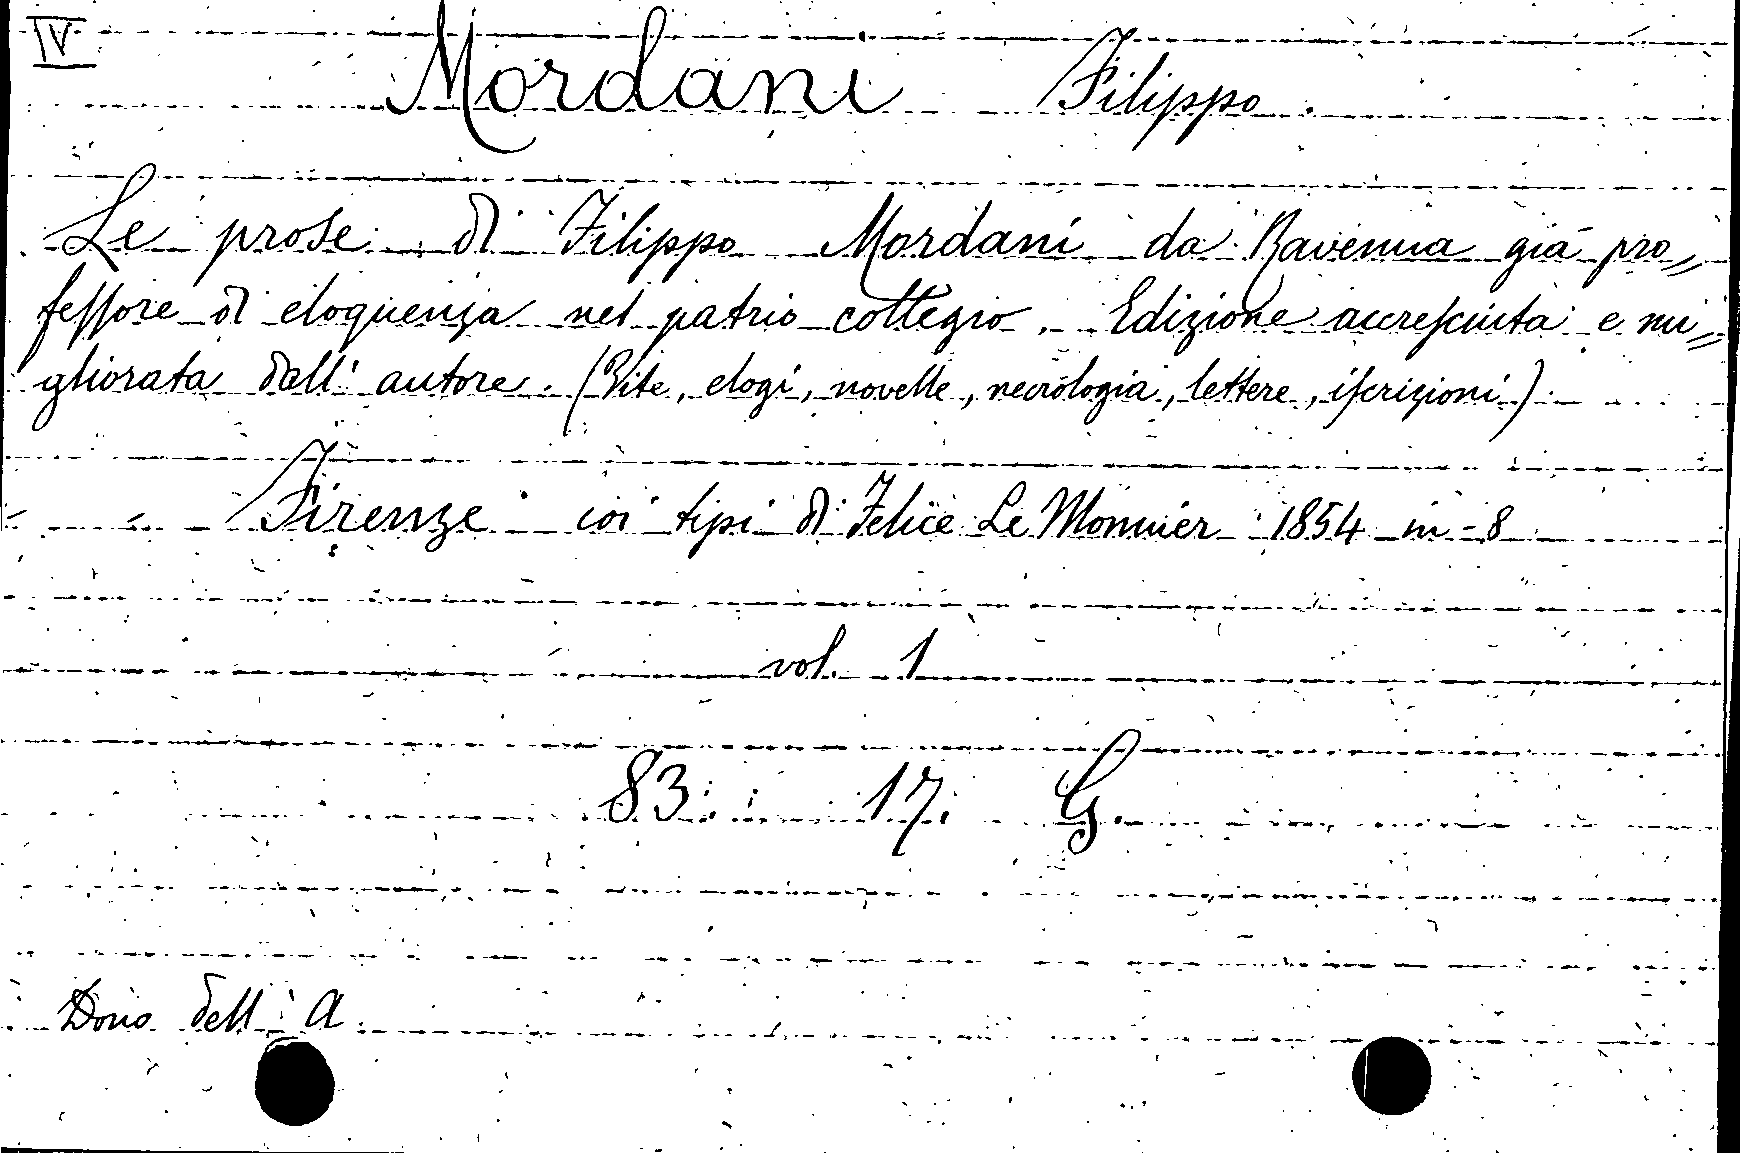 IV
Mordani Filippo.
Le prose di Filippo Mordani da Ravenna già pro„
fessore di eloquenza nel patrio collegio. Edizione accresciuta e mi„
gliorata dall'autore. (Vite, elogi, novelle, necrologia, lettere, iscrizioni)
Firenze coi tipi di Felice Le Monnier 1854 in-8
vol. 1
83. 17. G.
Dono dell'A